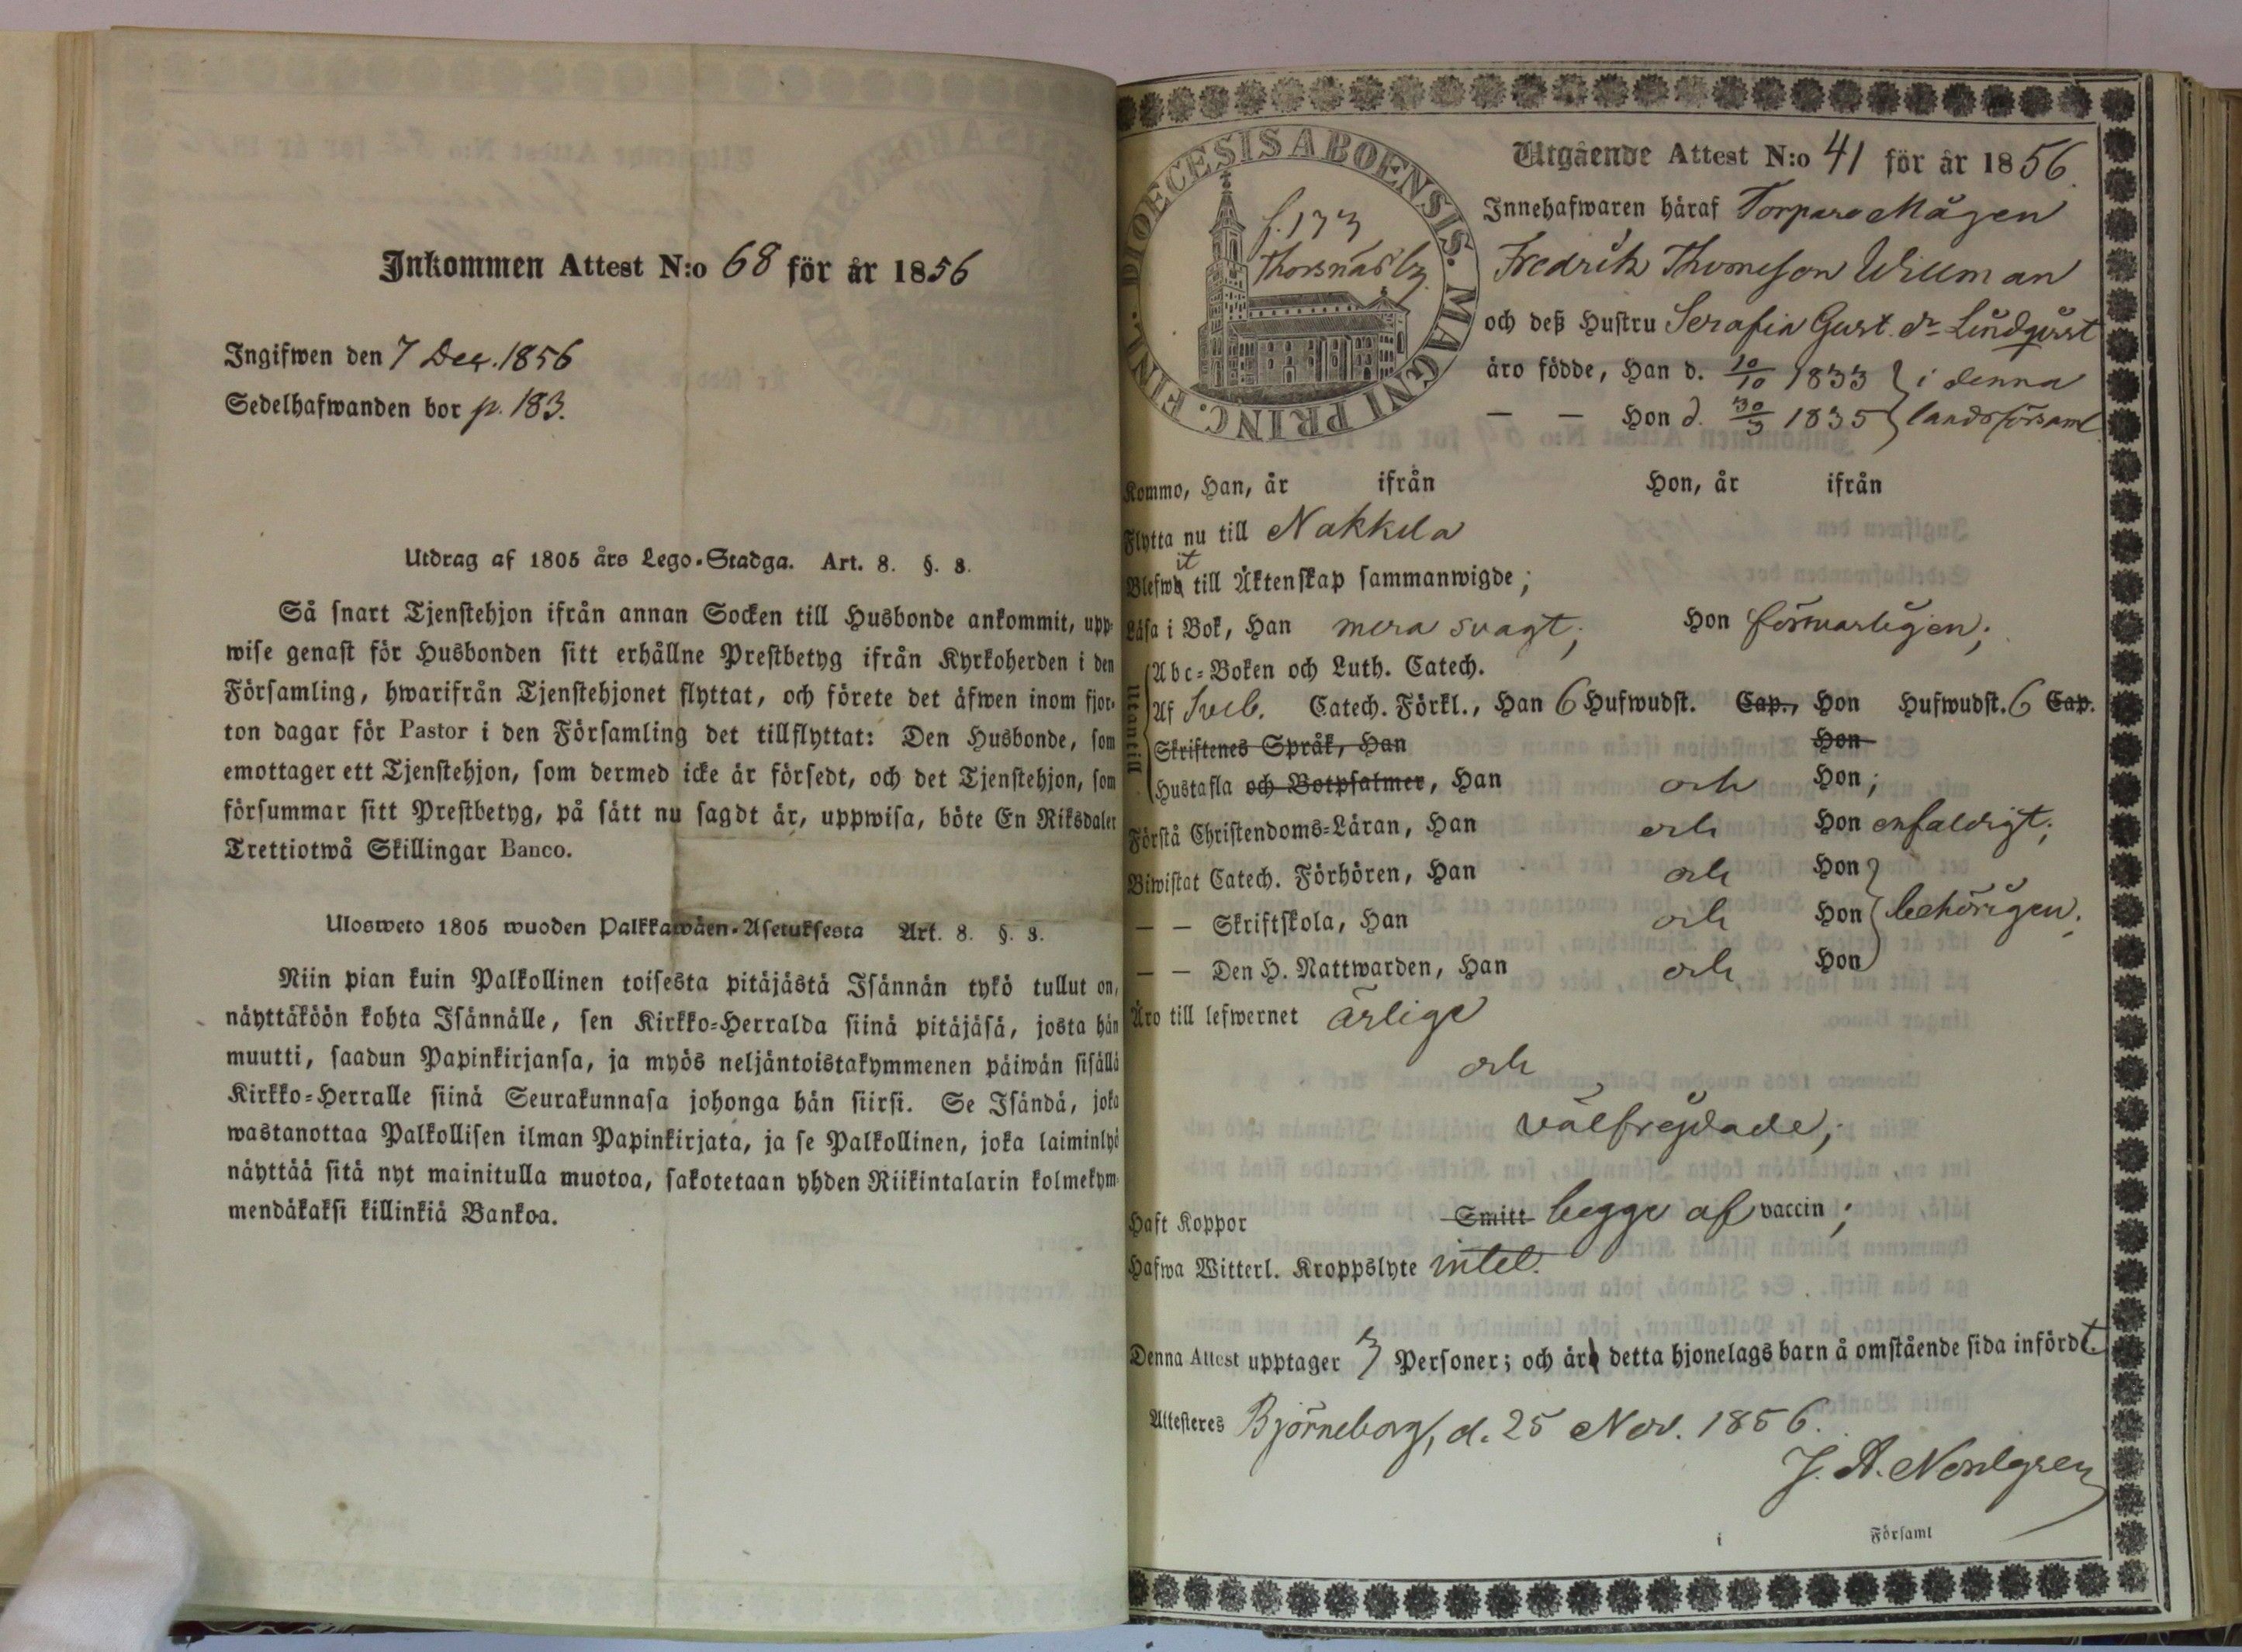 Inkommen Attest N:o 68 för år 1856
Ingifwen den 7 Dec. 1856
Sedelhafwanden bor p. 183.
Utdrag af 1805 års Lego-Stadga. Art. 8. §. 8.
Så snart Tjenstehjon ifrån annan Socken till Husbonde ankommit, upp-
wise genast för Husbonden sitt erhållne Prestbetyg ifrån Kyrkoherden i den
Församling, hwarifrån Tjenstehjonet flyttat, och förete det äfwen inom fjor-
ton dagar för Pastor i den Församling det tillflyttat: Den Husbonde, som
emottager ett Tjenstehjon, som dermed icke är försedt, och det Tjenstehjon, som
försummar sitt Prestbetyg, på sätt nu sagdt är, uppwisa, böte En Riksdaler
Trettiotwå Skillingar Banco.
Ulosweto 1805 wuoden Palkkawäen-Asetuksesta Art. 8. §. 8.
Niin pian kuin Palkollinen toisesta pitäjästä Isännän tykö tullut on,
näyttäköön kohta Isännälle, sen Kirkko-Herralda siinä pitäjäsä, josta hän
muutti, saadun Papinkirjansa, ja myös neljäntoistakymmenen päiwän sisällä
Kirkko-Herralle siinä Seurakunnasa johonga hän siirsi. Se Isändä, joka
wastanottaa Palkollisen ilman Papinkirjata, ja se Palkollinen, joka laiminlyö
näyttää sitä nyt mainitulla muotoa, sakotetaan yhden Riikintalarin kolmekym-
mendäkaksi killinkiä Bankoa.
DIOECESIS ABOENSIS. MAGNI PRINC. FINL.
f. 173
Thorsnäs by
Utgående Attest N:o 41 för år 1856.
Innehafwaren häraf Torpare Mågen
Fredrik Thomesson Willman
och deß Hustru Serafia Gust. dr Lindqvist
äro födde, Han d. 10/10 1833 i denna
— — Hon d. 30/3 1835 landsförsaml.
Kommo, Han, år ifrån Hon, år ifrån
Flytta nu till Nakkila
Blefwit till Äktenskap sammanwigde;
Läsa i Bok, Han mera svagt; Hon försvarligen;
Utantill
Abc-Boken och Luth. Catech.
Af Sveb. Catech. Förkl., Han 6 Hufwudst. Cap., Hon Hufwudst. 6 Cap.
Skriftenes Språk, Han Hon
Hustafla och Botpsalmer, Han och Hon;
Förstå Christendoms-Läran, Han och Hon enfaldigt;
Biwistat Catech. Förhören, Han och Hon
— — Skriftskola, Han och Hon behörigen;
— — Den H. Nattwarden, Han och Hon
Äro till lefwernet ärlige
och
välfrejdade;
Haft Koppor Smitt begge af vaccin;
Hafwa Witterl. Kroppslyte intet.
Denna Attest upptager 3 Personer; och är detta hjonelags barn å omstående sida infördt.
Attesteres Björneborg, d. 25 Nov. 1856.
J. A. Nordgren
i Församl